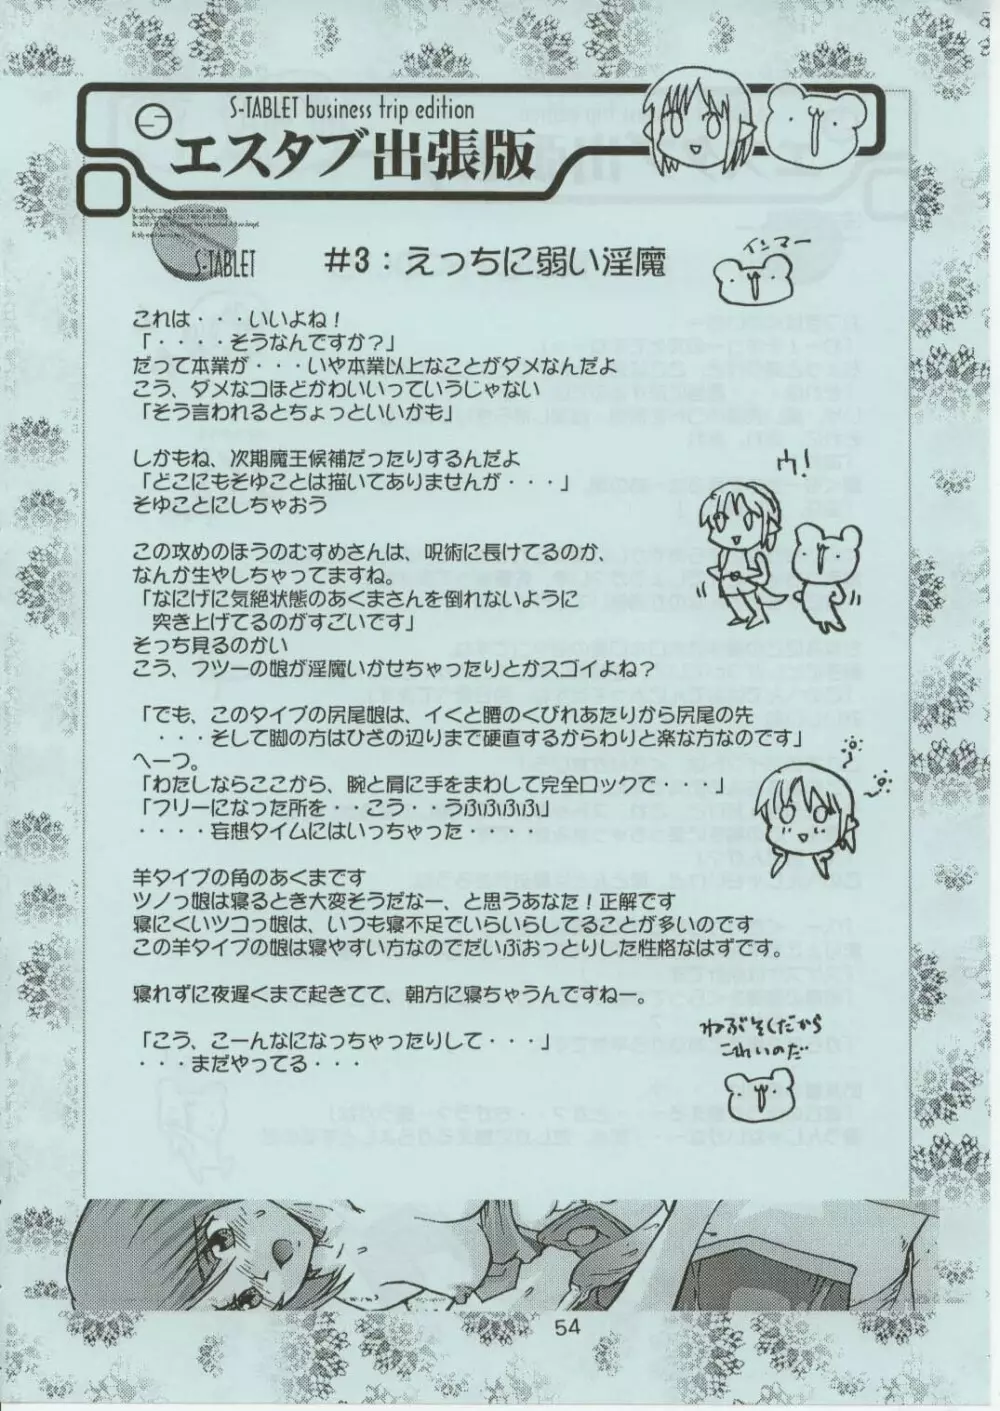 S-TABLET business trip edition
エスタブ出張版
S-TABLET
#3：えっちに弱い淫魔
インマー
これは・・・いいよね！
「・・・・そうなんですか？」
だって本業が・・・いや本業以上なことがダメなんだよ
こう、ダメなコほどかわいいっていうじゃない
「そう言われるとちょっといいかも」
しかもね、次期魔王候補だったりするんだよ
「どこにもそゆことは描いてありませんが・・・」
そゆことにしちゃおう
ウ！
この攻めのほうのむすめさんは、呪術に長けてるのか、
なんか生やしちゃってますね。
「なにげに気絶状態のあくまさんを倒れないように
突き上げてるのがすごいです」
そっち見るのかい
こう、フツーの娘が淫魔いかせちゃったりとかスゴイよね？
「でも、このタイプの尻尾娘は、イくと腰のくびれあたりから尻尾の先
・・・そして脚の方はひざの辺りまで硬直するからわりと楽な方なのです」
へーつ。
「わたしならここから、腕と肩に手をまわして完全ロックで・・・・」
「フリーになった所を・・こう・・うふふふふ」
・・・・妄想タイムにはいっちゃった・・・・
羊タイプの角のあくまです
ツノっ娘は寝るとき大変そうだなー、と思うあなた！正解です
寝にくいツコっ娘は、いつも寝不足でいらいらしてることが多いのです
この羊タイプの娘は寝やすい方なのでだいぶおっとりした性格なはずです。
寝れずに夜遅くまで起きてて、朝方に寝ちゃうんですねー。
「こう、こーんなになっちゃったりして・・・・」
・・・まだやってる・・・
ねぶそくだから
これいのだ
54